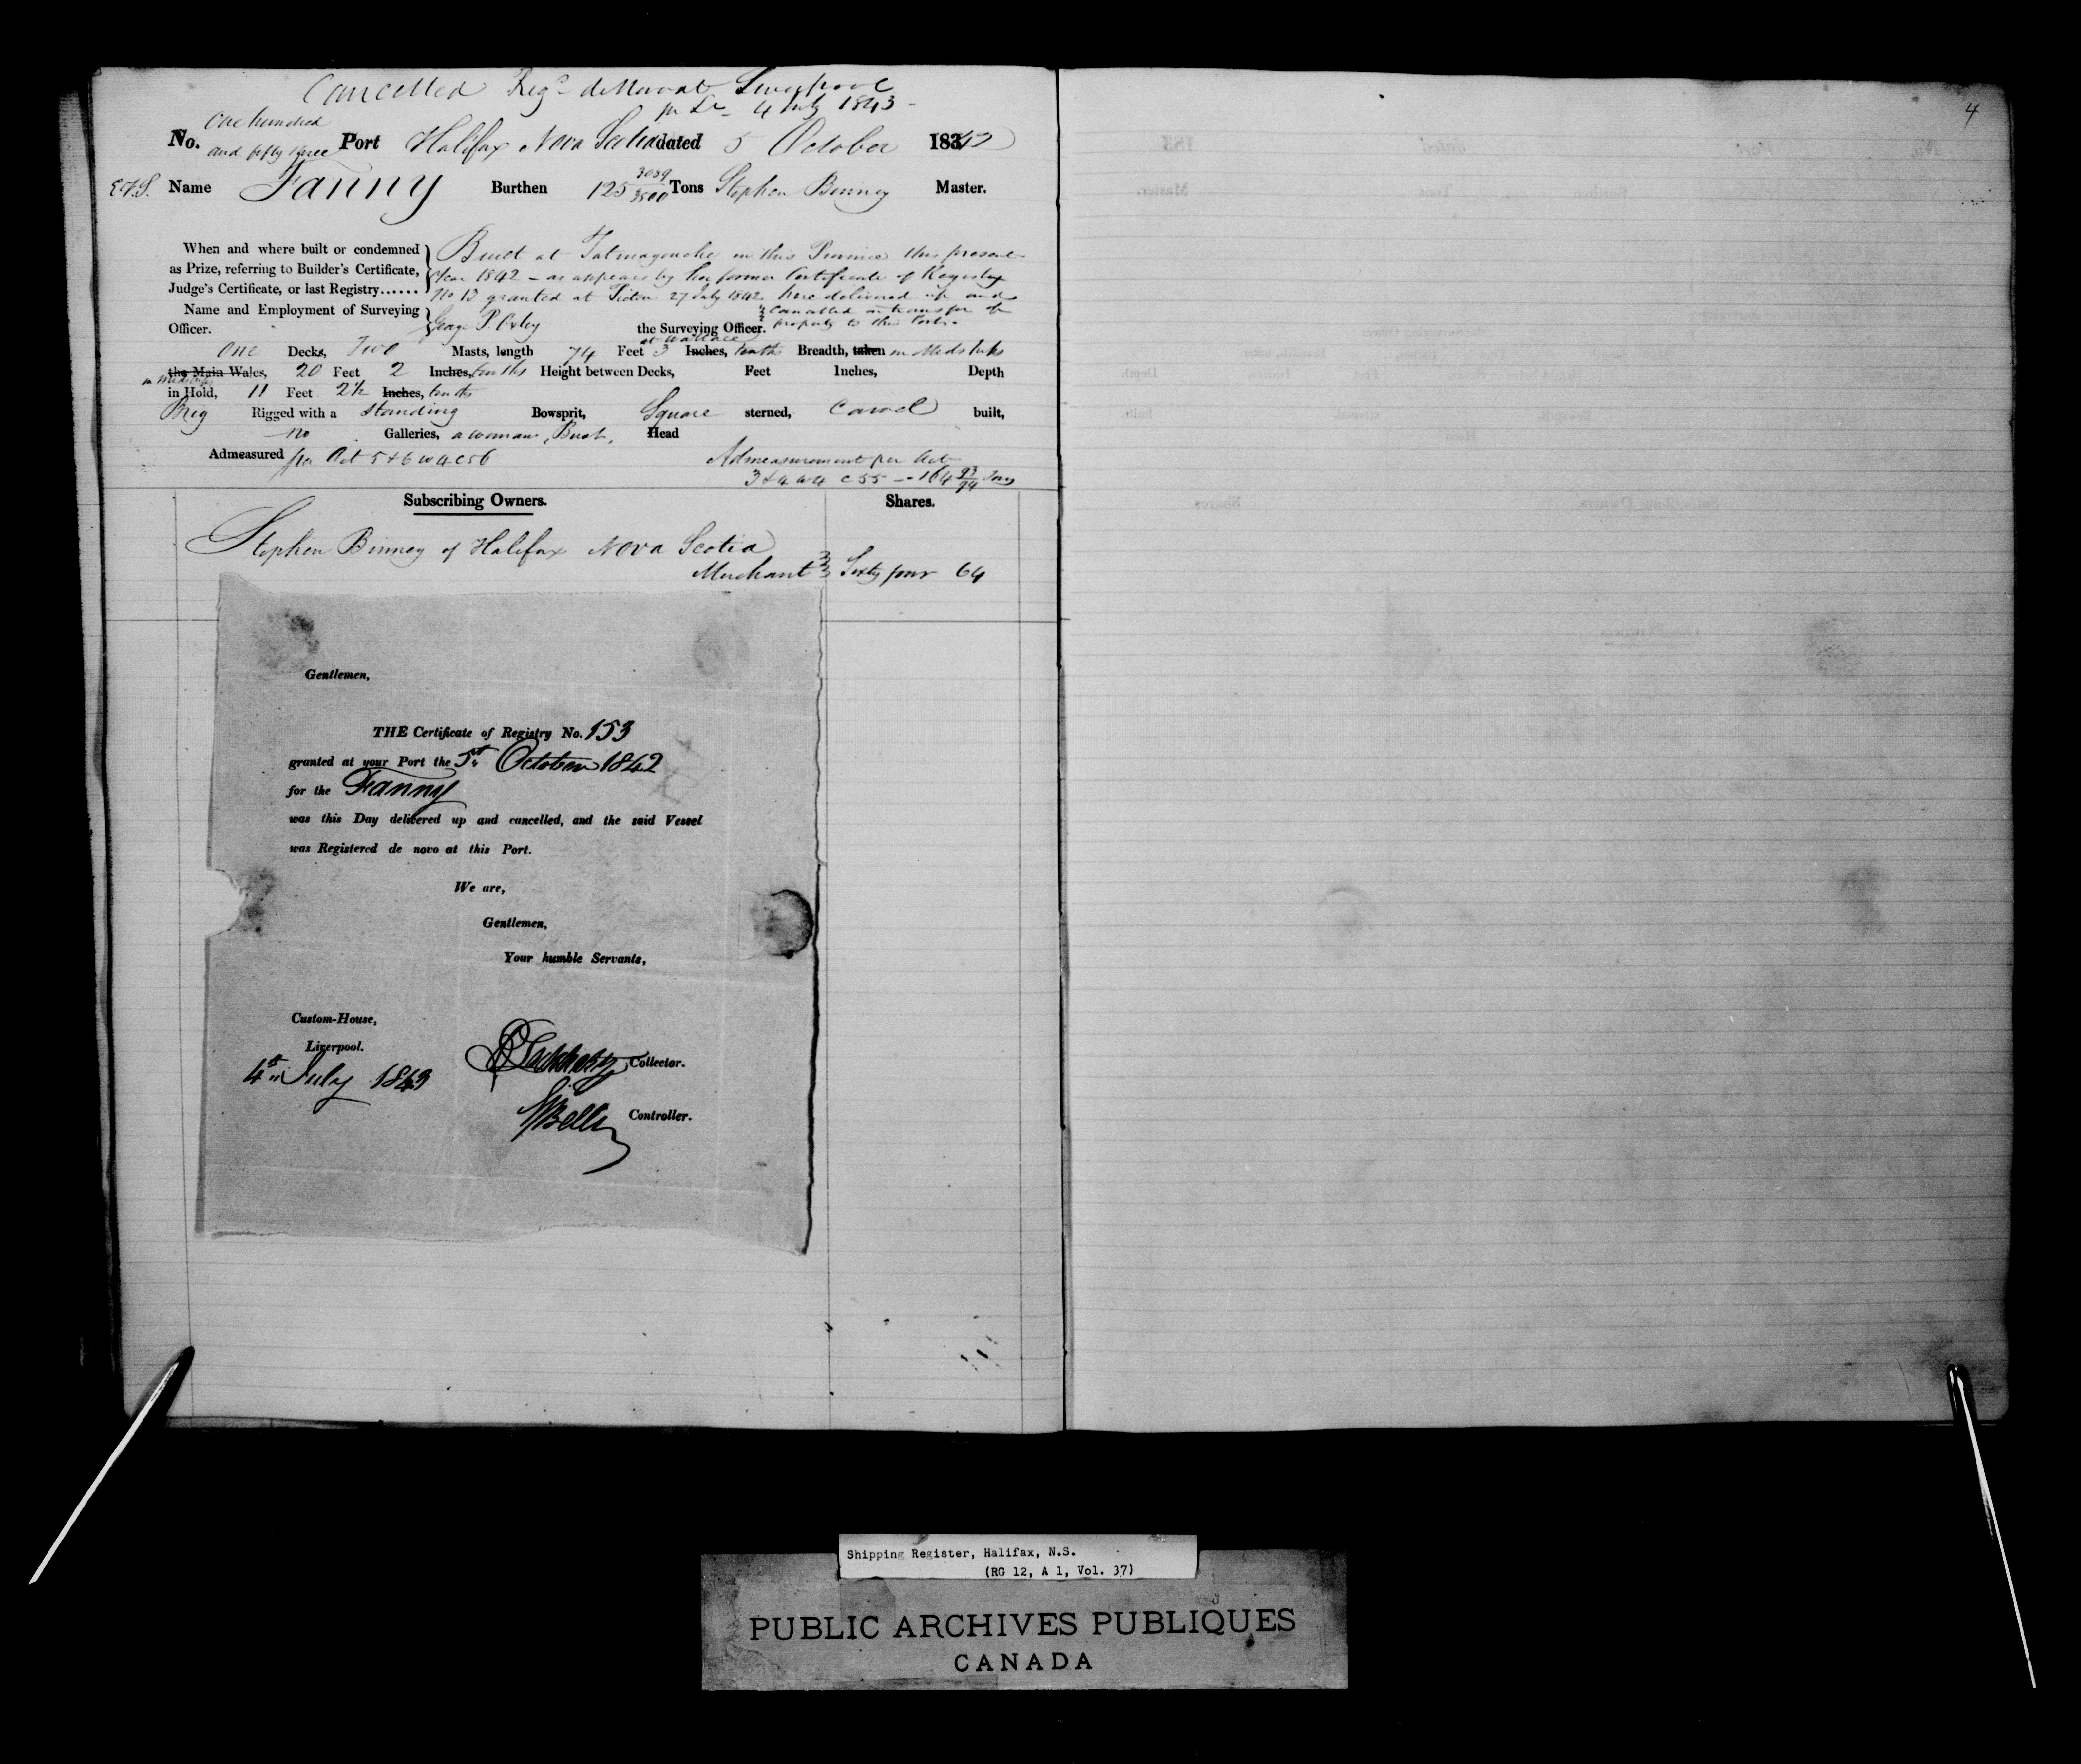 Cancelled Reg. de Novo at Liverpool
pr Lr 4 July 1843
No. One hundred and fifty three Port Halifax Nova Scotia dated 5 October 1842
Name Fanny Burthen 125 3059/3500 Tons Stephen Binney Master.
When and where built or condemned as Prize, referring to Builder's Certificate, Judge's Certificate, or last Registry......
Built at Tatmagouche in this Province this present
Year 1842 – as appears by her former Certificate of Registry
No 13 granted at Pictou 27 July 1842 here delivered up and
cancelled on transfer of
property to this Port.
Name and Employment of Surveying Officer.
George P. Oxley the Surveying Officer.
at Wallace
One Decks, Two Masts, length 74 Feet 3 Inches, tenths Breadth, taken in Midships
the Main Wales, 20 Feet 2 Inches, tenths Height between Decks, Feet Inches, Depth
in midships
in Hold, 11 Feet 2½ Inches, tenths
Brig Rigged with a Standing Bowsprit, Square sterned, Carvel built,
no Galleries, a woman Bust, Head
Admeasured per Act 5 & 6 W 4 c 56
Admeasurement per Act
3 & 4 W 4 c 55 – 164 93/94 Tons
Subscribing Owners. Shares.
Stephen Binney of Halifax Nova Scotia
Merchant Sixty four 64
Gentlemen,
THE Certificate of Registry No. 153
granted at your Port the 5th October 1842
for the Fanny
was this Day delivered up and cancelled, and the said Vessel
was Registered de novo at this Port.
We are,
Gentlemen,
Your humble Servants,
Custom-House,
Liverpool.
4th July 1843
Collector.
Controller.
4
Shipping Register, Halifax, N.S.
(RG 12, A 1, Vol. 37)
PUBLIC ARCHIVES PUBLIQUES
CANADA